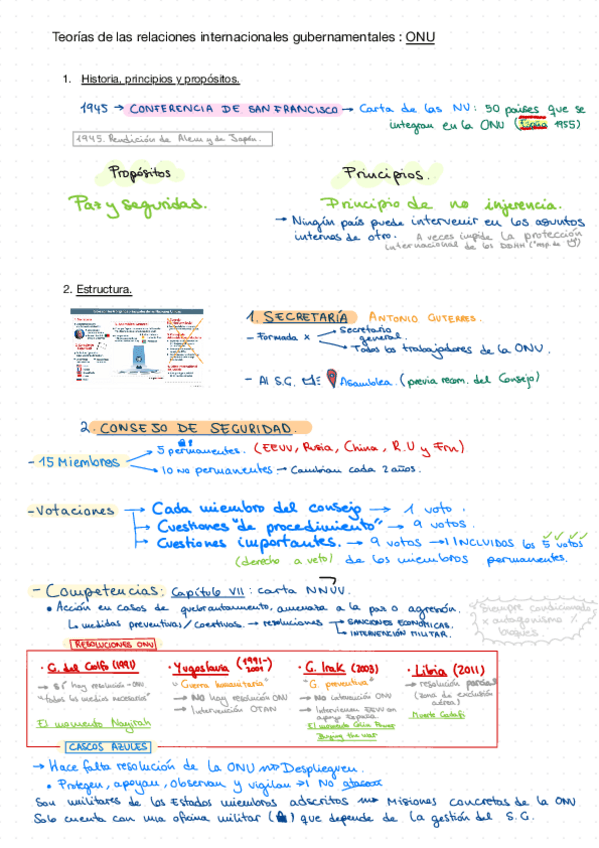 Teorías de las relaciones internacionales gubernamentales : ONU
1. Historia, principios y propósitos.
1945 → CONFERENCIA DE SAN FRANCISCO → Carta de las NU: 50 países que se
integran en la ONU (España 1955)
1945. Rendición de Alem y de Japón.
Propósitos
Paz y seguridad.
Principios.
Principio de no injerencia.
→ Ningún país puede intervenir en los asuntos
internos de otro. A veces impide la protección
internacional de los DDHH
2. Estructura.
1. SECRETARÍA ANTONIO GUTERRES.
- Formada x → Secretario general.
→ Todos los trabajadores de la ONU.
- Al S.G. Asamblea. (previa reom. del Consejo)
2. CONSEJO DE SEGURIDAD.
- 15 Miembros → 5 permanentes. (EEUU, Rusia, China, R.U y Frn)
→ 10 No permanentes. → Cambian cada 2 años.
- Votaciones → Cada miembro del consejo → 1 voto.
→ Cuestiones "de procedimiento" → 9 votos.
→ Cuestiones importantes. → 9 votos → INCLUIDOS los 5 votos
(derecho a veto) de los miembros permanentes.
- Competencias: Capítulo VII: carta NNUU.
• Acción en casos de quebrantamiento, amenaza a la paz o agresión.
↳ medidas preventivas/coercitivas. → resoluciones → SANCIONES ECONÓMICAS.
→ INTERVENCIÓN MILITAR.
* Siempre condicionado
x antagonismo
bloques.
RESOLUCIONES ONU
· G. del Golfo (1991)
→ Sí hay resolución ONU
"todos los medios necesarios"
El momento Nayirah
· Yugoslavia (1991-2001)
"Guerra humanitaria"
→ No hay resolución ONU
→ Intervención OTAN
· G. Irak (2003)
"G. preventiva"
→ No intervención ONU
→ Intervienen EEUU con
apoyo España
El momento Colin Power
Buying the war
· Libia (2011)
→ resolución parcial
(zona de exclusión
aérea)
Muerte Gadafi
CASCOS AZULES
→ Hace falta resolución de la ONU → Desplieguen.
• Protegen, apoyan, observan y vigilan → No atacar
Son militares de los Estados miembros adscritos → Misiones concretas de la ONU
Solo cuenta con una oficina militar que depende de la gestión del S.G.